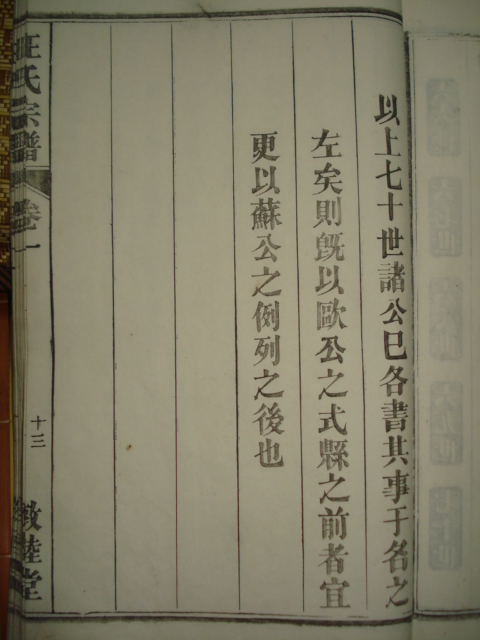 以上七十世諸公巳各書其事于名之
左矣則旣以歐公之式縣之前者宜
更以蘇公之例列之後也
汪氏宗譜
卷一
十三
敦睦堂